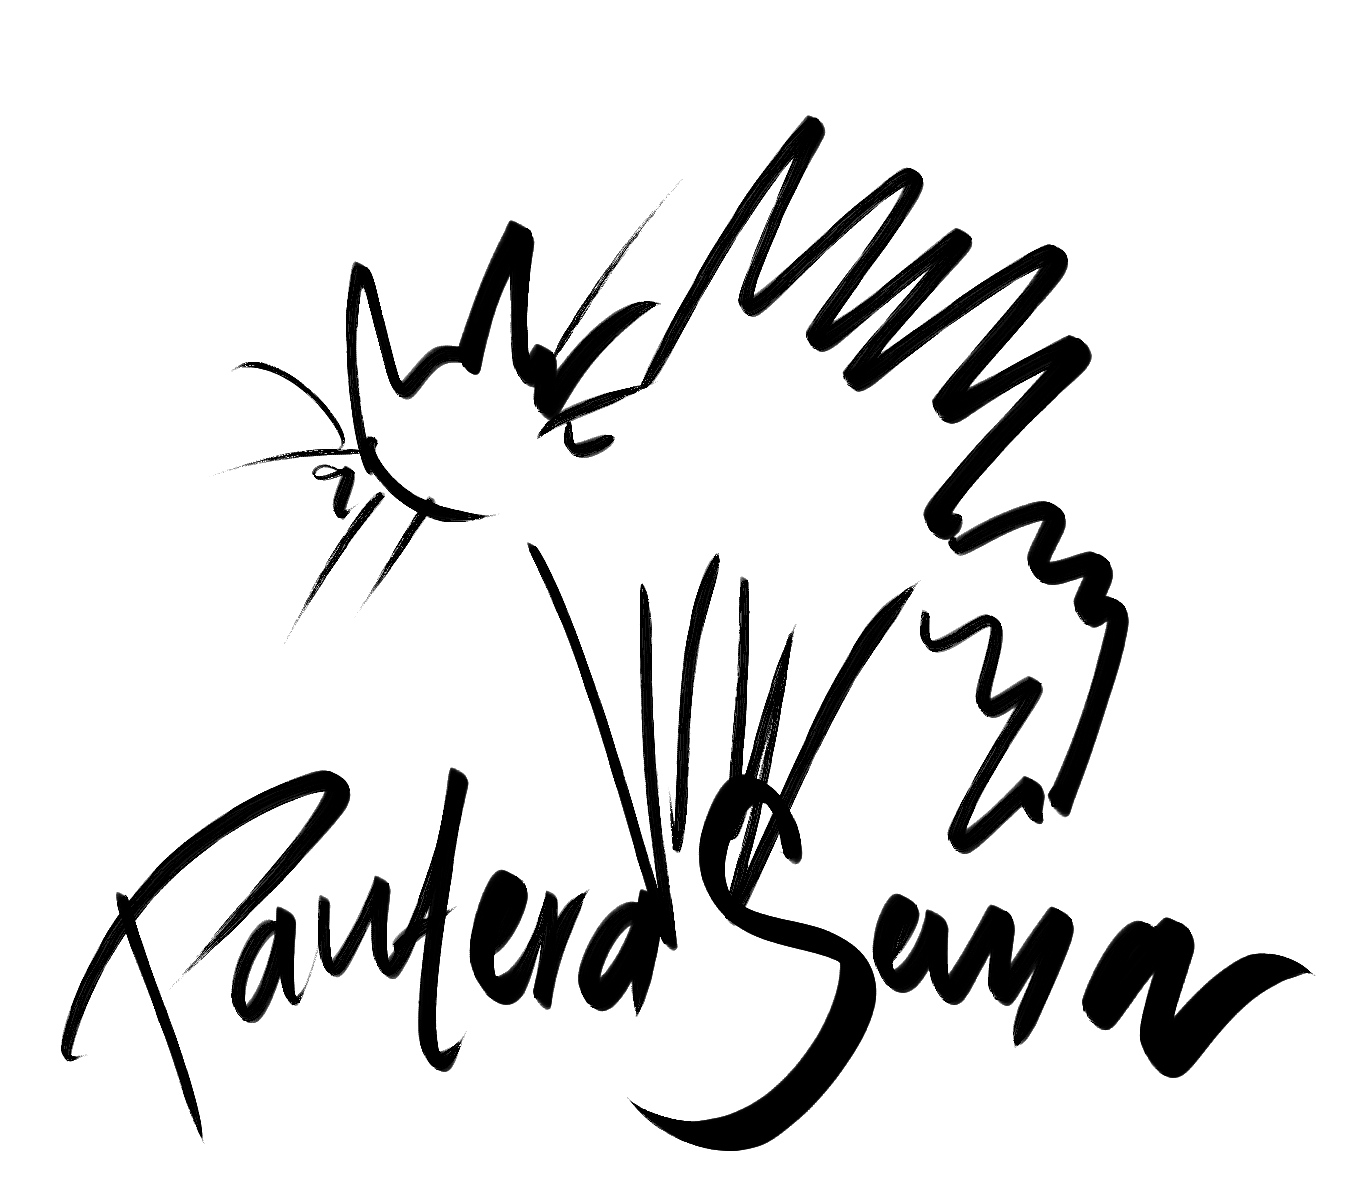 Pantera Sana